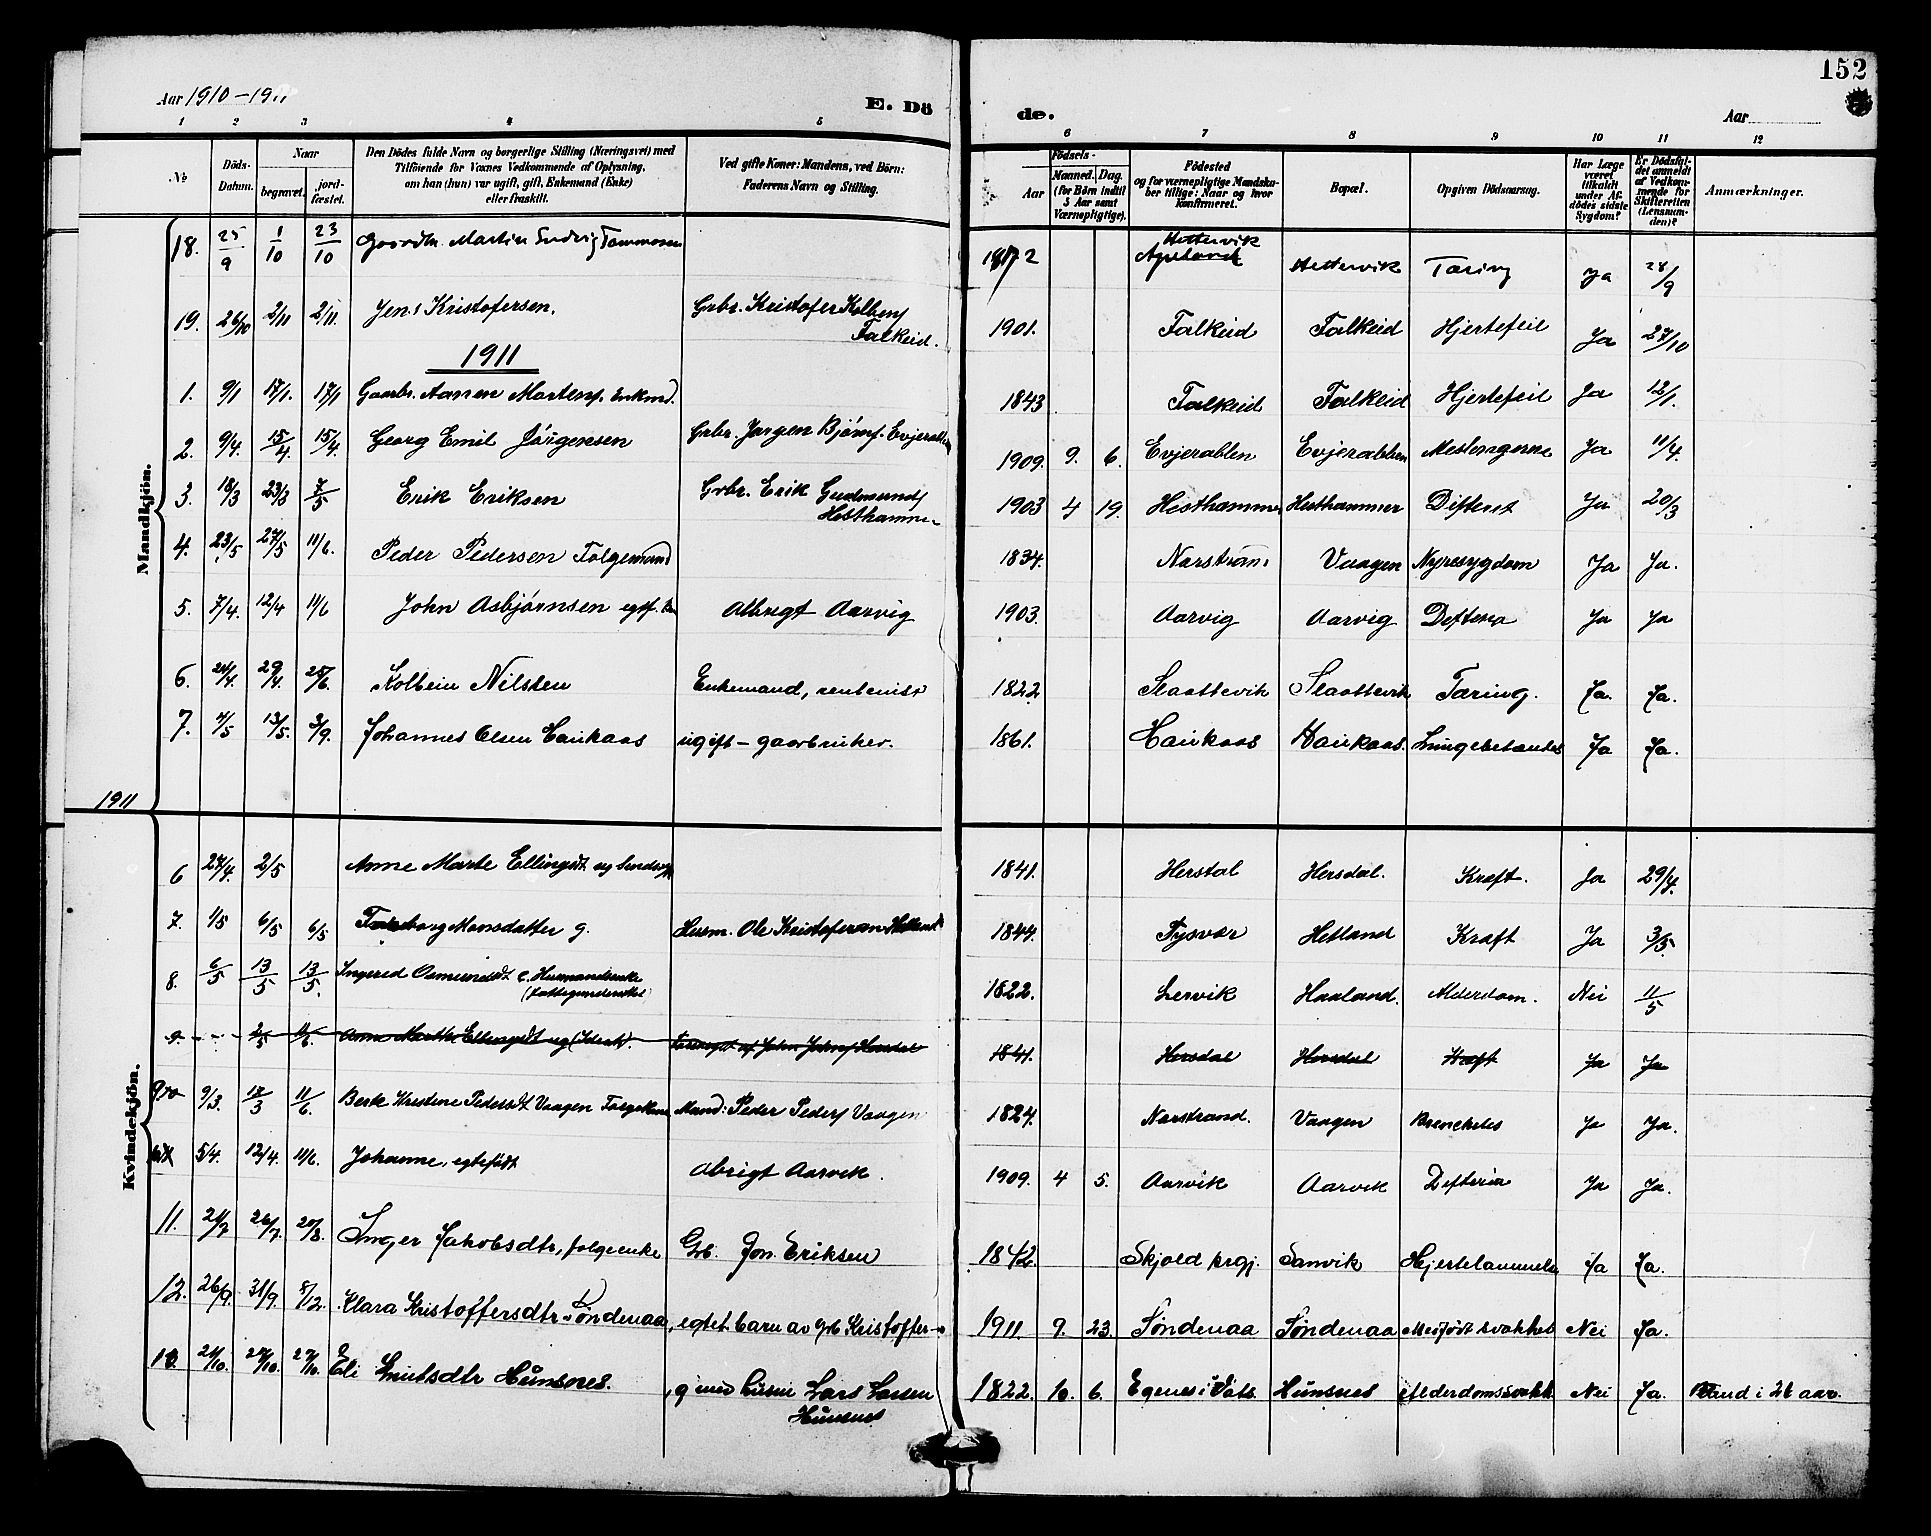 152
Aar 1910-1911 E. Dö de. Aar
1 2 3 4 5 6 7 8 9 10 11 12
№ Döds-Datum. Naar begravet. jordfæstet. Den Dödes fulde Navn og borgerlige Stilling (Næringsvei) med Tilföiende for Voxnes Vedkommende af Oplysning, om han (hun) var ugift, gift, Enkemand (Enke) eller fraskilt. Ved gifte Koner: Mandens, ved Börn: Faderens Navn og Stilling. Födsels- Aar Maaned. Dag. (for Börn indtil 5 Aar samt Værnepligtige). Födested og for værnepligtige Mandskaber tillige: Naar og hvor konfirmeret. Bopæl. Opgiven Dödsaarsag. Har Læge været tilkaldt under Afdödes sidste Sygdom? Er Dödsfaldet anmeldt af Vedkommende for Skifteretten (Lensmanden)? Anmærkninger.
Mandkjön.
18. 25/9 1/10 23/10 Martin 1872 Hettervik Hettervik Tæring Ja 28/9
19. 26/10 2/11 2/11 Jens Kristofersen. Grbr. Kristofer Kolbens Falkeid. 1901. Falkeid Falkeid Hjertefeil Ja 27/10
1911
1. 9/1 17/1. 17/1 Gaarbr. Aanen Martens. Enkmd. 1843 Falkeid Falkeid Hjertefeil Ja 12/1.
2. 9/4. 15/4. 15/4. Georg Emil Jörgensen Grbr. Jörgen Bjørns. Evjerabben 1909. 9. 6. Evjerabben Evjerabben Meslingerne Ja 11/4.
3. 18/3 23/3 7/5 Erik Eriksen Grbr. Erik Gudmunds Hesthammer 1903 4 19. Hesthammer Hesthammer Difterit Ja 20/3
4. 23/5 27/5 11/6. Peder Pedersen Folgemand 1834. Narstrand Vaagen Nyresygdom Ja Ja.
5. 7/4. 12/4 11/6 John Asbjørnsen egtf. Abrigt Aarvig 1903. Aarvig Aarvig Defteria Ja Ja
6. 24/4. 29/4. 25/6. Kolbein Nilsen Enkemand, rentenist 1822 Slaattevik Slaattevik Tæring. Ja. Ja.
7. 4/5 13/5. 3/9. Johannes Olsen Haukaas ugift - gaarbruker. 1861. Haukaas Haukaas. Lungebetændelse Ja Ja.
1911
Kvindekjön.
6 27/4. 2/5 Anne Marte Ellingsdt ug 1841. Herstal Hersdal. Kræft. Ja 29/4.
7. 1/5 6/5 6/5 Monsdatter g. Husm. Ole Kristofersen Hetland 1844. Tysvær Hetland Kræft Ja 3/5.
8. 6/5 13/5 13/5. Ingered Osmundsdt e. Husmandsenke (fattigunderstøt) 1822. Lervik Haaland. Alderdom. Nei 11/5
9. - - 2/5 11/6. Anne Marthe Ellingsdt ug 1841. Hersdal Hersdal Kræft Ja Ja
9 10 9/3. 17/3 11/6. Berte Kristine Pedersdt Vaagen Mand: Peder Peders Vaagen 1824. Narstrand. Vaagen Bronchites Ja Ja.
5/4. 12/4. 11/6. Johanne, egtefødt Abrigt Aarvik. 1909. 4 5. Aarvik Aarvik Defteria Ja Ja.
11. 21/7 26/7. 20/8. Inger Jakobsdtr, folgeenke Gb. Jon Eriksen 1842. Skjold prgj. Sanvik Hjertelammelse Ja Ja.
12. 26/9. 31/9. 8/12. Klara Kristoffersdtr Søndenaa, egtet. barn av Grb Kristoffer 1911 9. 23. Søndenaa Søndenaa Medfødt svakhet Nei Ja.
13. 21/10. 27/10. 27/10. Eli Knutsdtr Hunsnes. , g med husm Lars Larsen Hunsnes 1822. 10. 6. Egenes i Vats. Hunsnes Alderdomssvakh Nei Ja. Blind i 26 aar.